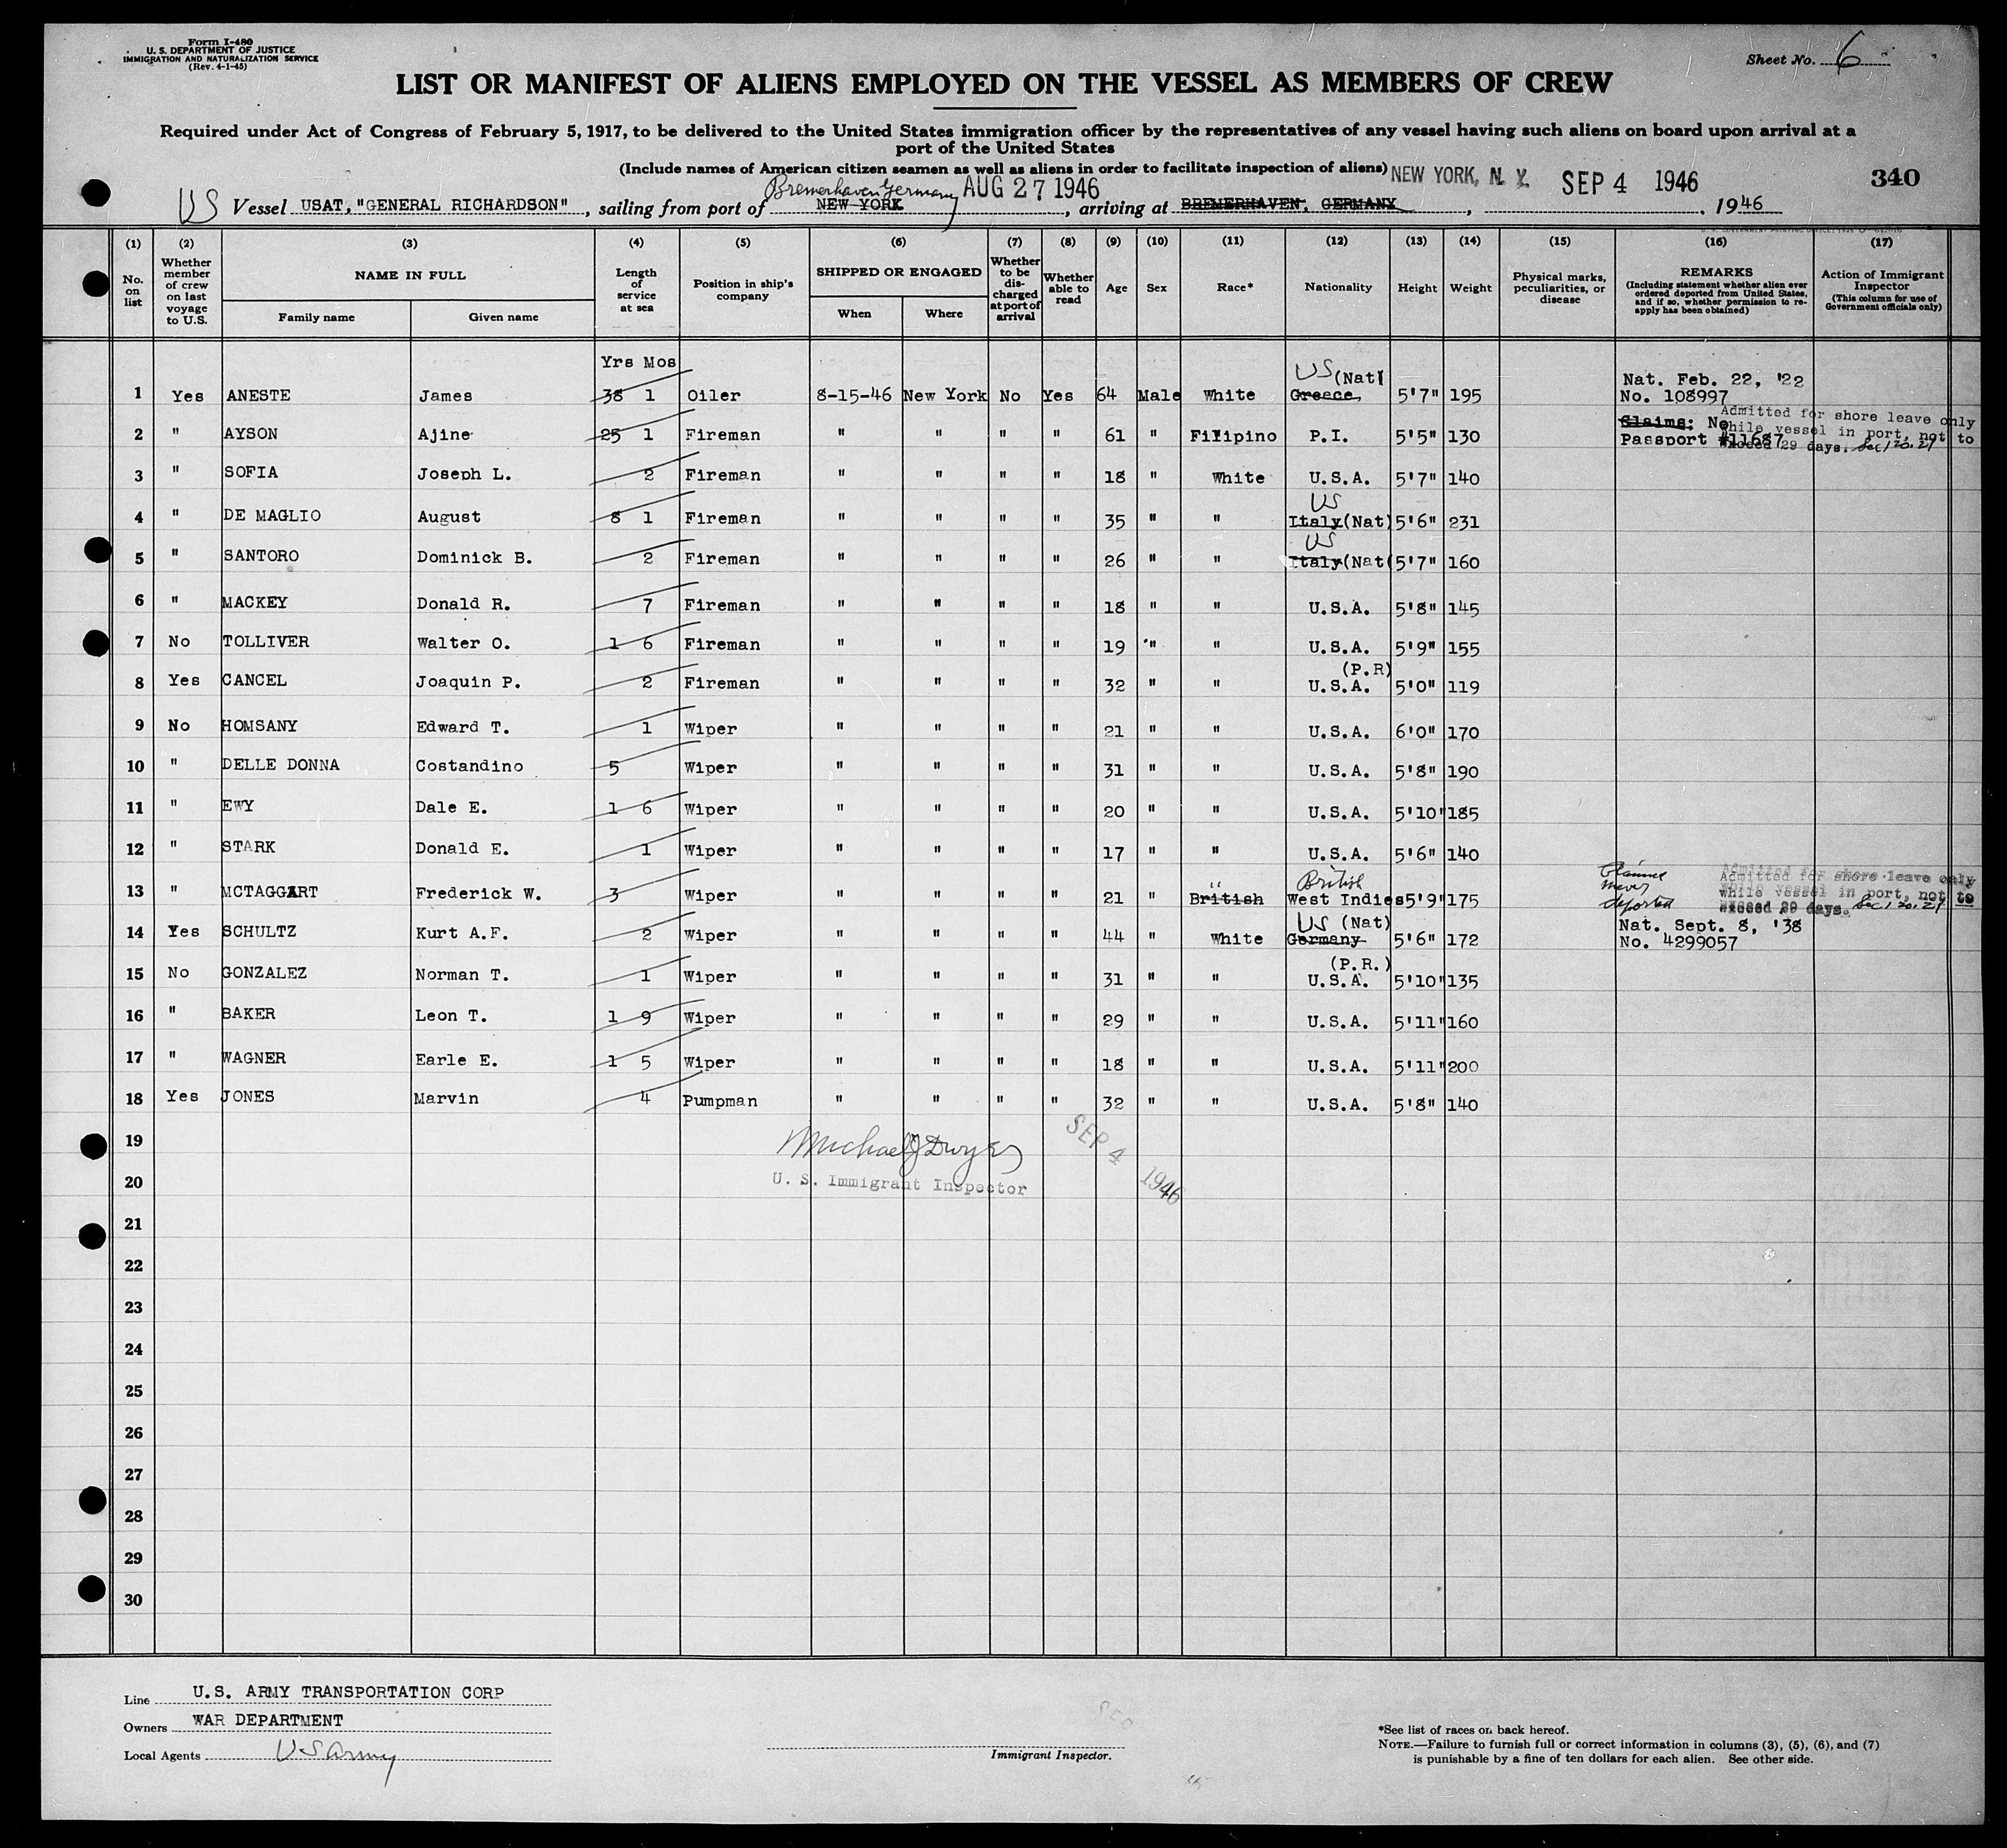 Form I-480
U. S. DEPARTMENT OF JUSTICE
IMMIGRATION AND NATURALIZATION SERVICE
(Rev. 4-1-45)
Sheet No. 6
LIST OR MANIFEST OF ALIENS EMPLOYED ON THE VESSEL AS MEMBERS OF CREW
Required under Act of Congress of February 5, 1917, to be delivered to the United States immigration officer by the representatives of any vessel having such aliens on board upon arrival at a
port of the United States
(Include names of American citizen seamen as well as aliens in order to facilitate inspection of aliens)
NEW YORK, N. Y. SEP 4 1946 340
Bremerhaven Germany AUG 27 1946
US Vessel USAT, "GENERAL RICHARDSON", sailing from port of NEW YORK, arriving at BREMERHAVEN, GERMANY, 1946
(1) (2) (3) (4) (5) (6) (7) (8) (9) (10) (11) (12) (13) (14) (15) (16) (17)
No. on list
Whether member of crew on last voyage to U.S.
NAME IN FULL
Family name Given name
Length of service at sea
Position in ship's company
SHIPPED OR ENGAGED
When Where
Whether to be discharged at port of arrival
Whether able to read
Age Sex Race* Nationality Height Weight
Physical marks, peculiarities, or disease
REMARKS
(Including statement whether alien ever ordered deported from United States, and if so, whether permission to reapply has been obtained)
Action of Immigrant Inspector
(This column for use of Government officials only)
Yrs Mos
1 Yes ANESTE James 38 1 Oiler 8-15-46 New York No Yes 64 Male White US (Nat) Greece, 5'7" 195 Nat. Feb. 22, '22 No. 108997
2 " AYSON Ajine 25 1 Fireman " " " " 61 " Filipino P.I. 5'5" 130 Claims: No Passport #11687 Admitted for shore leave only while vessel in port, not to exceed 29 days. Sec 1 20.21
3 " SOFIA Joseph L. 2 Fireman " " " " 18 " White U.S.A. 5'7" 140
4 " DE MAGLIO August 8 1 Fireman " " " " 35 " " US Italy(Nat) 5'6" 231
5 " SANTORO Dominick B. 2 Fireman " " " " 26 " " US Italy(Nat( 5'7" 160
6 " MACKEY Donald R. 7 Fireman " " " " 18 " " U.S.A. 5'8" 145
7 No TOLLIVER Walter O. 1 6 Fireman " " " " 19 " " U.S.A. 5'9" 155
8 Yes CANCEL Joaquin P. 2 Fireman " " " " 32 " " (P.R) U.S.A. 5'0" 119
9 No HOMSANY Edward T. 1 Wiper " " " " 21 " " U.S.A. 6'0" 170
10 " DELLE DONNA Costandino 5 Wiper " " " " 31 " " U.S.A. 5'8" 190
11 " EWY Dale E. 1 6 Wiper " " " " 20 " " U.S.A. 5'10" 185
12 " STARK Donald E. 1 Wiper " " " " 17 " " U.S.A. 5'6" 140
13 " MCTAGGART Frederick W. 3 Wiper " " " " 21 " " British British West Indies 5'9" 175 Claimed never deported Admitted for shore leave only while vessel in port, not to exceed 29 days. Sec 1 20.21
14 Yes SCHULTZ Kurt A.F. 2 Wiper " " " " 44 " White US (Nat) Germany 5'6" 172 Nat. Sept. 8, '38 No. 4299057
15 No GONZALEZ Norman T. 1 Wiper " " " " 31 " " (P.R.) U.S.A. 5'10" 135
16 " BAKER Leon T. 1 9 Wiper " " " " 29 " " U.S.A. 5'11" 160
17 " WAGNER Earle E. 1 5 Wiper " " " " 18 " " U.S.A. 5'11" 200
18 Yes JONES Marvin 4 Pumpman " " " " 32 " " U.S.A. 5'8" 140
19 Michael J Dwyer SEP 4 1946
20 U. S. Immigrant Inspector
21
22
23
24
25
26
27
28
29
30
Line U.S. ARMY TRANSPORTATION CORP
Owners WAR DEPARTMENT
Local Agents US Army
Immigrant Inspector.
*See list of races on back hereof.
NOTE.—Failure to furnish full or correct information in columns (3), (5), (6), and (7)
is punishable by a fine of ten dollars for each alien. See other side.